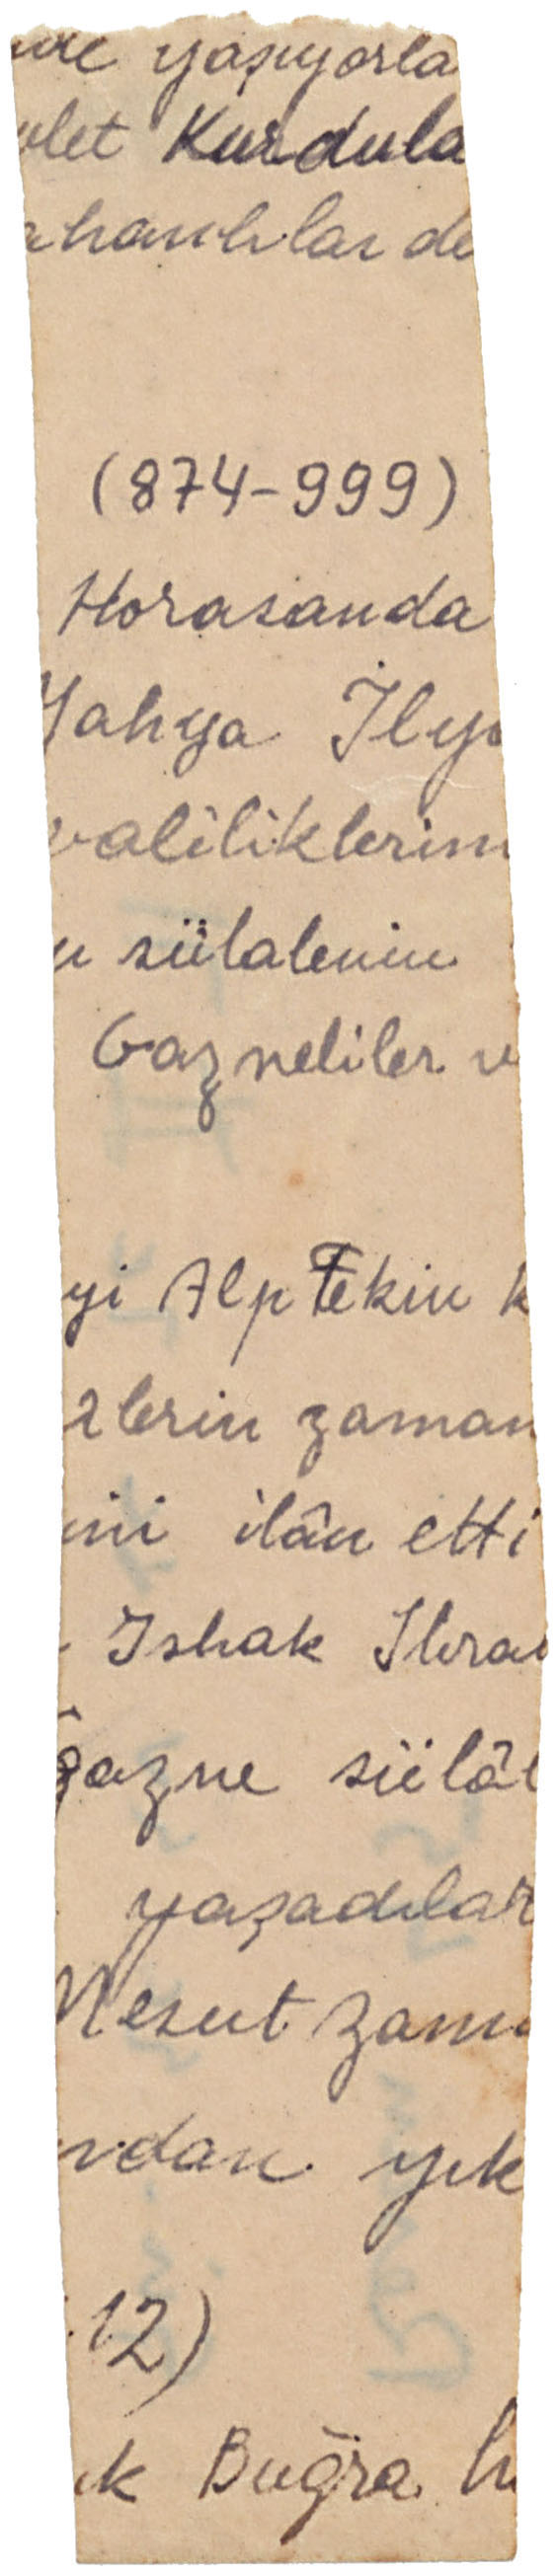 yaşıyorla
vlet Kurdula
ahanlılar de
(874-999)
Horasanda
Yahya İlya
valiliklerini
u sülalenin
Gazneliler v
yi Alp Tekin k
zlerin zaman
ini ilân etti
Ishak Ibra
gazne sülâl
yaşadılar
Mesut zama
ndan yık
12)
ık Buğra h